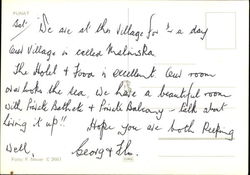 Sat.
We are at this Village for ½ a day
Our Village is called Malinska
The Hotel & Food is excellent our room
overlooks the sea We have a beautiful room
with Private Bathetc & Private Balcony - talk about
living it up!!
Hope you are both keeping
well,
George &